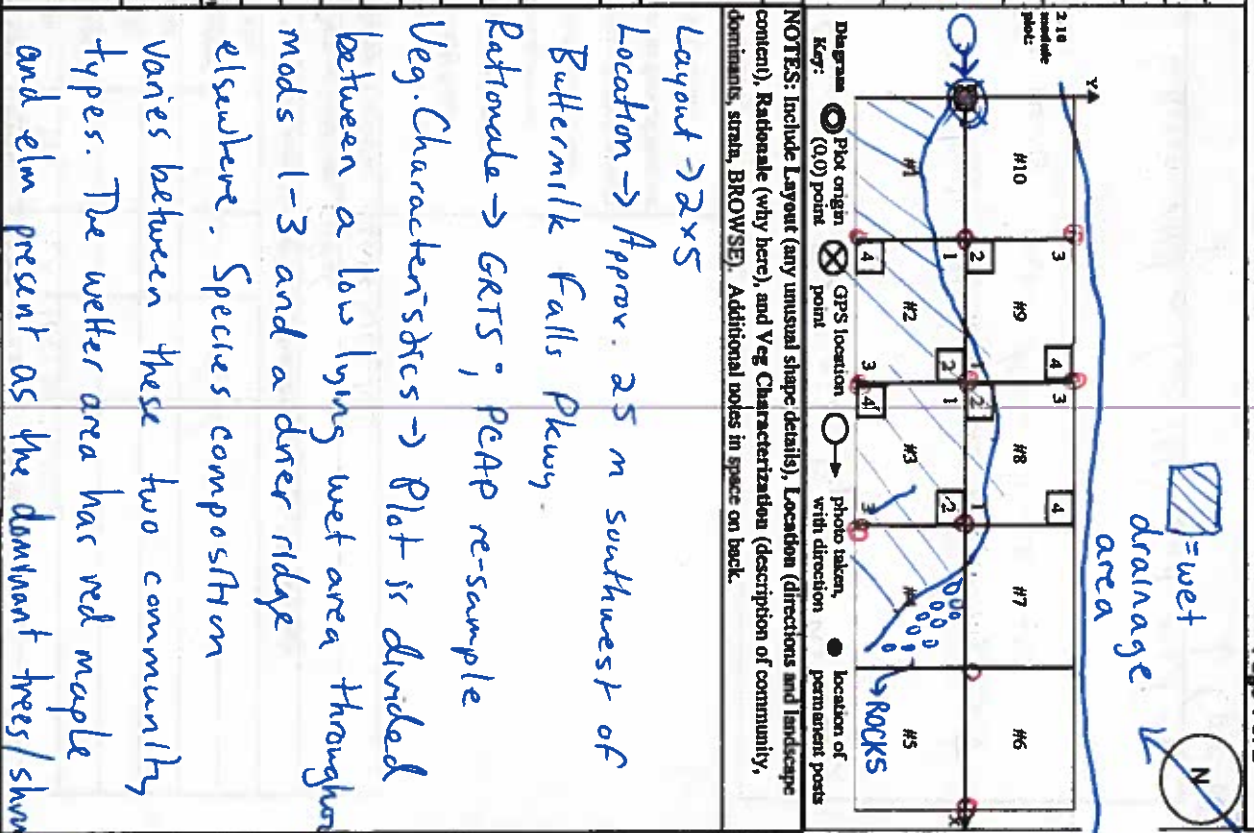 = wet
drainage
area
N
2 10
module
plot:
Y
X
#10
#9
#8
#7
#6
3
4
3
4
2
1
2
1
1
2
1
2
#1
#2
#3
#4
#5
4
3
4
3
ROCKS
Diagram Key:
Plot origin (0,0) point
GPS location point
photo taken, with direction
location of permanent posts
NOTES: Include Layout (any unusual shape details), Location (directions and landscape
content), Rationale (why here), and Veg Characterization (description of community,
dominants, strata, BROWSE). Additional notes in space on back.
Layout → 2x5
Location → Approx. 25 m southwest of
Buttermilk Falls Pkwy.
Rationale → GRTS; PCAP re-sample
Veg. Characteristics → Plot is divided
between a low lying wet area throughou
mods 1-3 and a drier ridge
elsewhere. Species composition
varies between these two community
types. The wetter area has red maple
and elm present as the dominant trees/shru